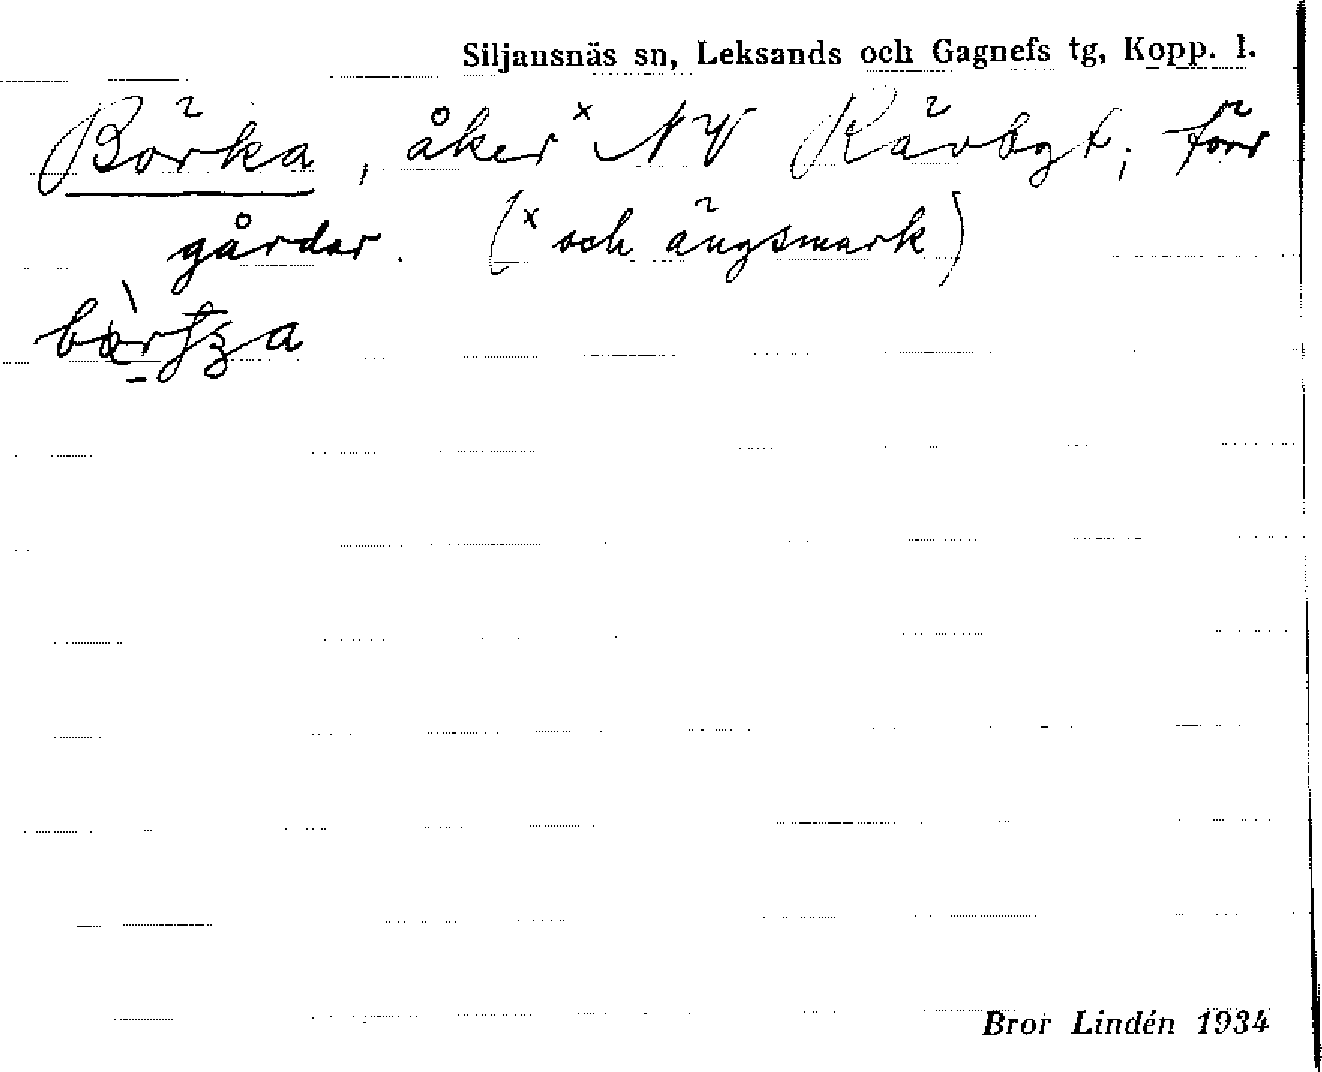 Siljansnäs sn, Leksands och Gagnefs tg, Kopp. l.
Börka, åker x NV Rävbyt; förr
gårdar. (x och ängsmark)
Bror Lindén 1934